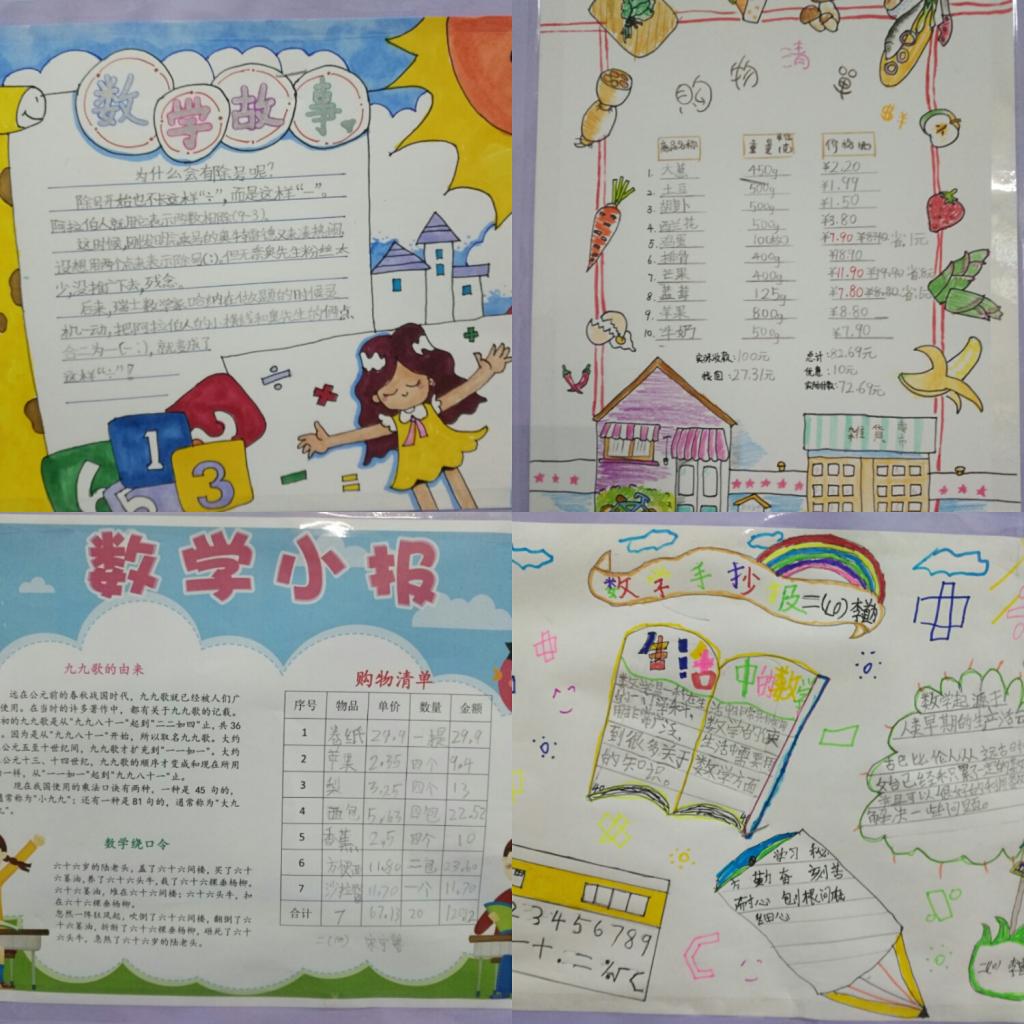 数学故事
为什么会有除号呢？
除号开始也不长这样“÷”，而是这样“—”。
阿拉伯人就用它表示两数相除(9-3)。
这时候，刚发明
没想用两个点去表示除号(:)，但无奈奥先生粉丝太
少，没推广下去，残念。
后来，瑞士数学家哈纳在做题的时候灵
机一动，把阿拉伯人的小横线和奥先生的俩点
合二为一(-:)，就变成了
这样“÷”！
6 5 1 2 3
÷ × + - =
购物清单
商品名称 重量 价格
1. 大葱 450g ¥2.20
2. 土豆 500g ¥1.99
3. 胡萝卜 500g ¥1.50
4. 西兰花 500g ¥3.80
5. 鸡蛋 10(枚) ¥7.90 ¥8.90 省1元
6. 排骨 400g ¥18.90
7. 芒果 400g ¥11.90 ¥19.90 省8元
8. 蓝莓 125g ¥7.80 ¥8.80 省1元
9. 苹果 800g ¥8.80
10. 牛奶 500g ¥7.90
实际收款：100元 总计：82.69元
找回：27.31元 优惠：10元
实际付款：72.69元
雜貨
数学小报
九九歌的由来
远在公元前的春秋战国时代，九九歌就已经被人们广
使用。在当时的许多著作中，都有关于九九歌的记载。
初的九九歌是从“九九八十一”起到“二二如四”止，共 36
。因为是从“九九八十一”开始，所以取名九九歌。大约
公元五至十世纪间，九九歌才扩充到“一一如一”。大约
公元十三、十四世纪，九九歌的顺序才变成和现在所用
一样，从“一一如一”起到“九九八十一”止。
现在我国使用的乘法口诀有两种，一种是 45 句的，
通常称为“小九九”；还有一种是 81 句的，通常称为“大九
”。
数学绕口令
六十六岁的陆老头，盖了六十六间楼，买了六十
六篓油，养了六十六头牛，栽了六十六棵垂杨柳。
六十六篓油，堆在六十六间楼；六十六头牛，扣
在六十六棵垂杨柳。
忽然一阵狂风起，吹倒了六十六间楼，翻倒了六
十六篓油，折断了六十六棵垂杨柳，砸死了六十
六头牛，急煞了六十六岁的陆老头。
购物清单
序号 物品 单价 数量 金额
1 卷纸 29.9 一提 29.9
2 苹果 2.35 四个 9.4
3 梨 3.25 四个 13
4 面包 5.63 四包 22.52
5 香蕉 2.5 四个 10
6 方便面 11.80 二包 23.60
7 沙拉酱 11.70 一个 11.70
合计 7 67.13 20
二(10)
数学手抄报 二(10)
生活中的数学
到很多关于
的知识。
生活中需要用
数学方面
数学起源于
人类早期的生产活动
古巴比伦人从远古时
解决一些问题。
学习
勤奋 刻苦
耐心
细心
23456789
二(10)